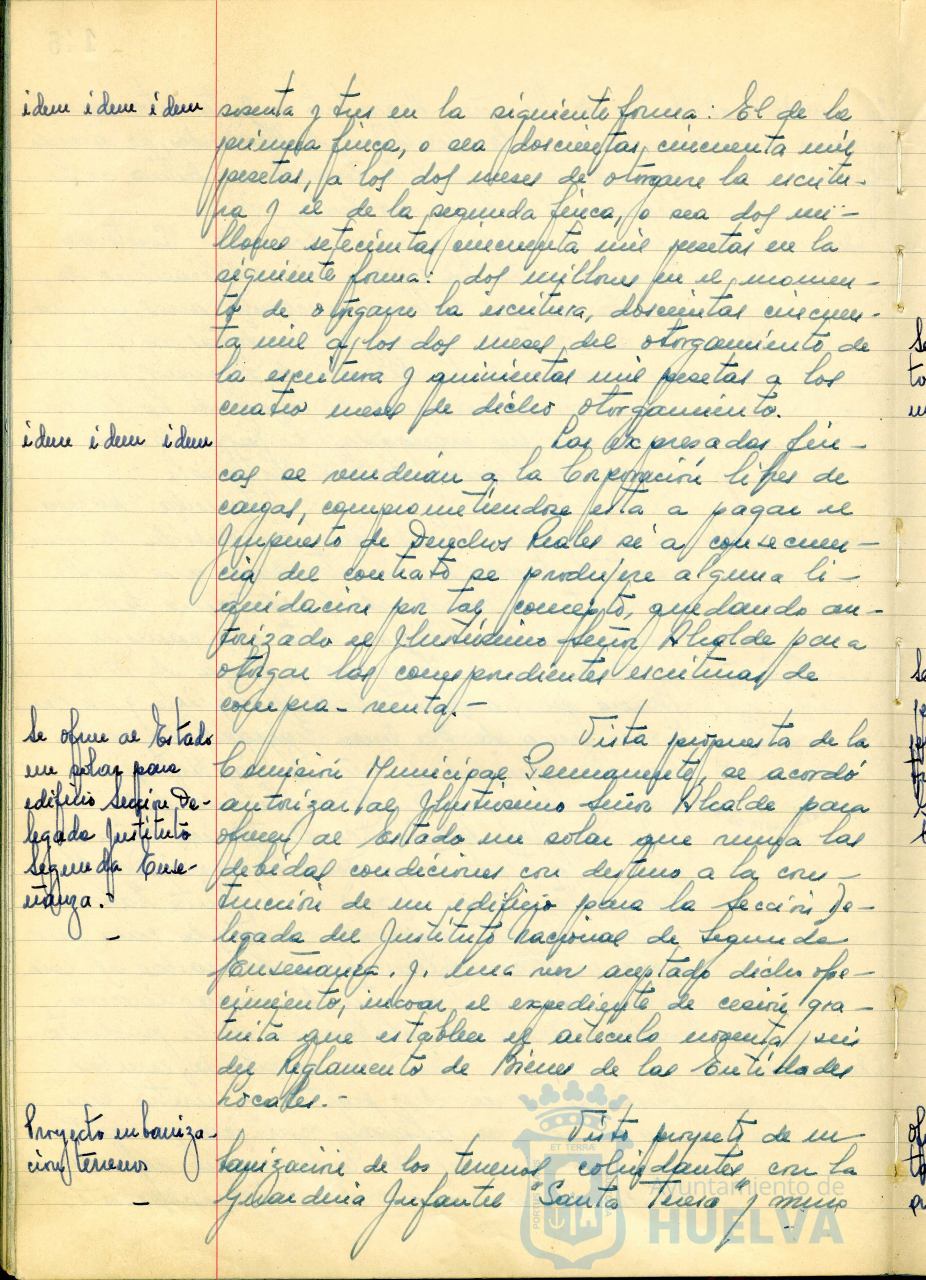 idem idem idem
sesenta y tres en la siguiente forma: El de la
primera finca, o sea doscientas cincuenta mil
pesetas, a los dos meses de otorgarse la escritu-
ra y el de la segunda finca, o sea dos mi-
llones setecientas cincuenta mil pesetas en la
siguiente forma: dos millones en el momen-
to de otorgarse la escritura, doscientas cincuen-
ta mil a los dos meses del otorgamiento de
la escritura y quinientas mil pesetas a los
cuatro meses de dicho otorgamiento.
idem idem idem
Las expresadas fin-
cas se venderán a la Corporación libres de
cargas, comprometiendose esta a pagar el
Impuesto de Derechos Reales si a consecuen-
cia del contrato se produjere alguna li-
quidación por tal concepto, quedando au-
torizado el Ilustrisimo Señor Alcalde para
otorgar las correspondientes escrituras de
compra-venta.-
Se ofrece al Estado
un solar para
edificio Sección De-
legada Instituto
Segunda Ense-
ñanza.-
Vista propuesta de la
Comisión Municipal Permanente, se acordó
autorizar al Ilustrisimo Señor Alcalde para
ofrecer al Estado un solar que reuna las
debidas condiciones con destino a la cons-
trucción de un edificio para la Sección De-
legada del Instituto Nacional de Segunda
Enseñanza. y, una vez aceptado dicho ofre-
cimiento, incoar el expediente de cesión gra-
tuita que establece el articulo noventa y seis
del Reglamento de Bienes de las Entidades
Locales.-
Proyecto urbaniza-
cion terrenos
Visto proyecto de ur
banización de los terrenos colindantes con la
Guarderia Infantil "Santa Teresa" y muro
Ayuntamiento de
HUELVA